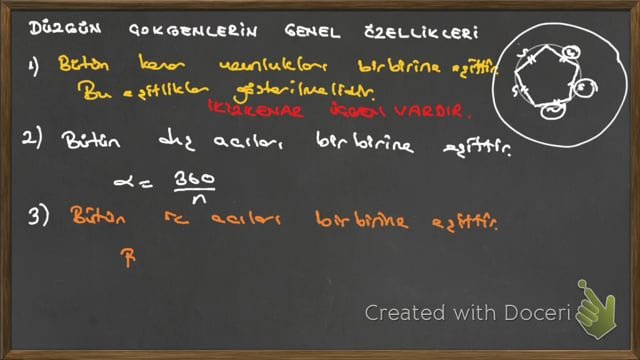 DÜZGÜN ÇOKGENLERİN GENEL ÖZELLİKLERİ
1) Bütün kenar uzunlukları birbirine eşittir.
Bu eşitlikler gösterilmelidir.
İKİZKENAR ÜÇGEN VARDIR.
2) Bütün dış açıları birbirine eşittir.
α = 360/n
3) Bütün iç açıları birbirine eşittir.
Created with Doceri